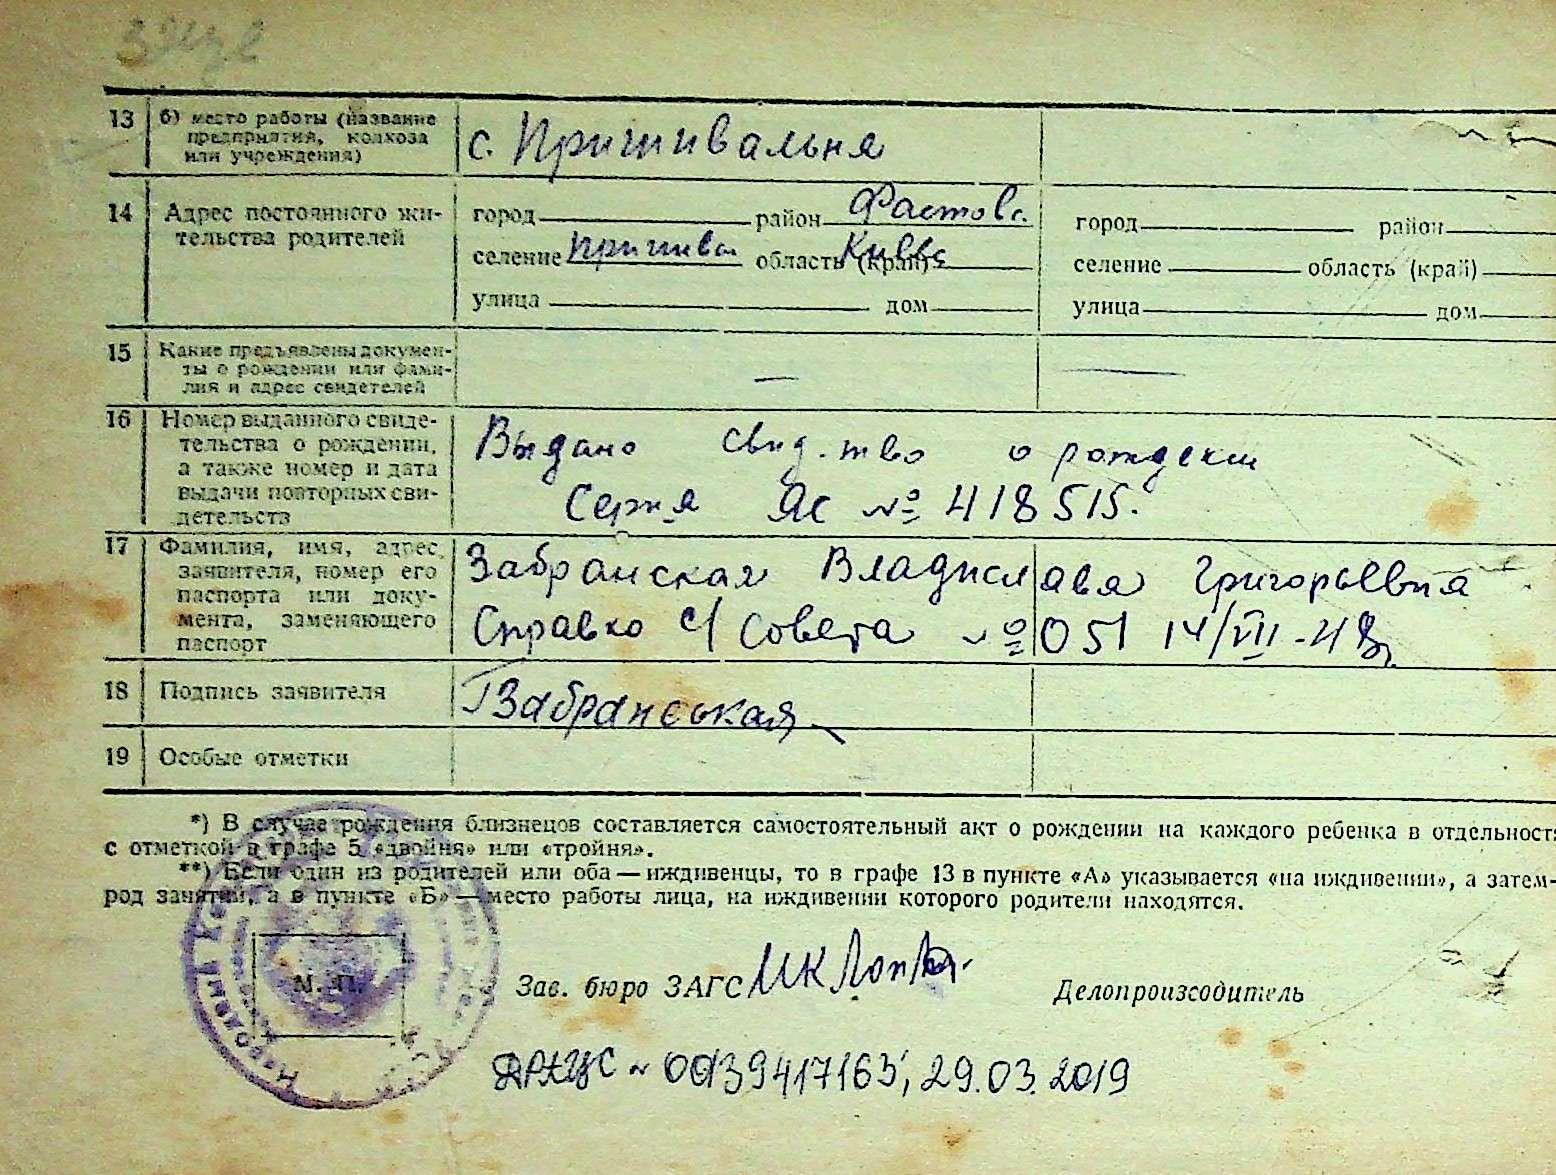 13 б) место работы (название
предприятия, колхоза
или учреждения)
с. Пришивальня
14 Адрес постоянного жи-
тельства родителей
город район Фастовс.
селение Пришива область (край) Киевс
улица дом
город район
селение область (край)
улица дом
15 Какие предъявлены докумен-
ты о рождении или фами-
лия и адрес свидетелей
—
—
16 Номер выданного свиде-
тельства о рождении,
а также номер и дата
выдачи повторных сви-
детельств
Выдано свид.тво о рождении
Серия ЯС № 418515.
17 Фамилия, имя, адрес
заявителя, номер его
паспорта или доку-
мента, заменяющего
паспорт
Забранская Владислава Григорьевна
Справка с/Совета № 051 14/VII-48г.
18 Подпись заявителя
Забранськая
19 Особые отметки
*) В случае рождения близнецов составляется самостоятельный акт о рождении на каждого ребенка в отдельности
с отметкой в графе 5 «двойня» или «тройня».
**) Если один из родителей или оба — иждивенцы, то в графе 13 в пункте «А» указывается «на иждивении», а затем-
род занятий, а в пункте «Б» — место работы лица, на иждивении которого родители находятся.
М. П.
Зав. бюро ЗАГС
Делопроизводитель
ДРАЦС № 00139417163; 29.03.2019